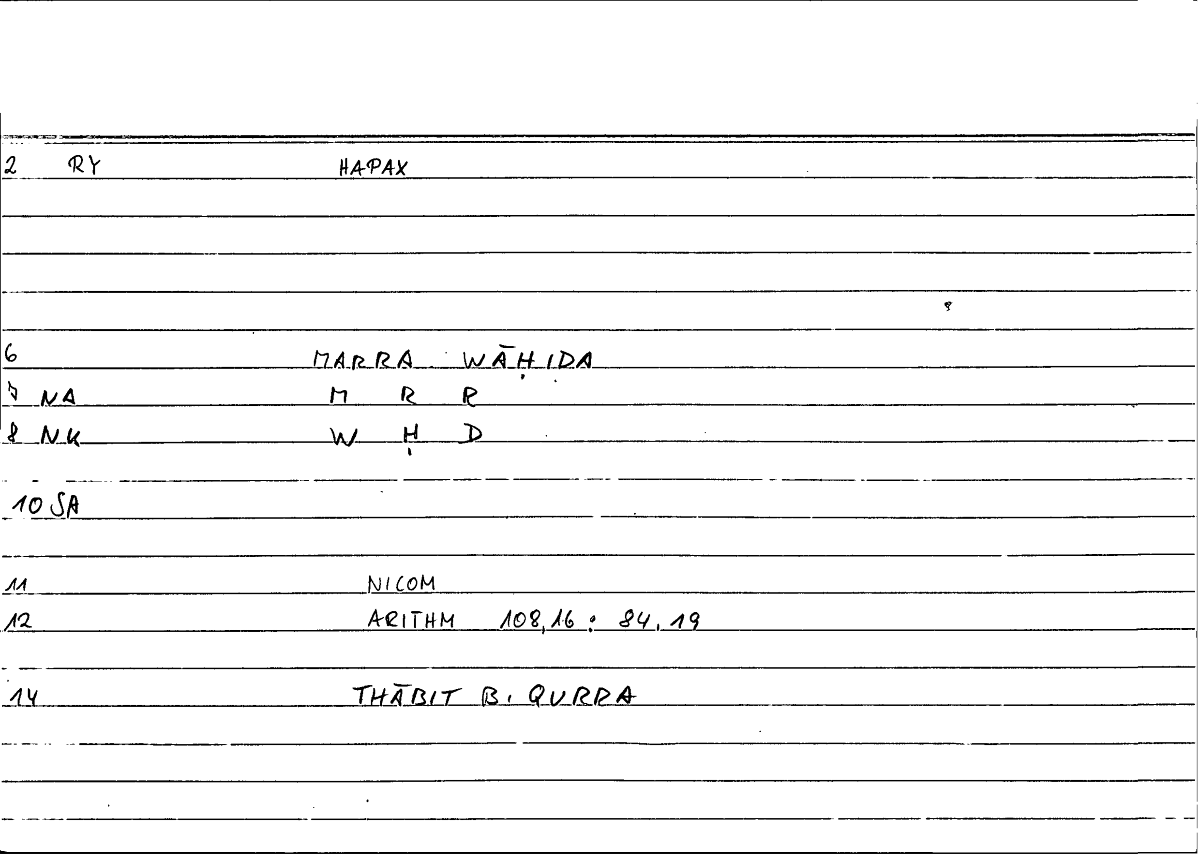 2 RY HAPAX
6 MARRA WĀḤIDA
7 NA M R R
8 NK W Ḥ D
10 SA
11 NICOM
12 ARITHM 108,16 : 84.19
14 THĀBIT B. QURRA